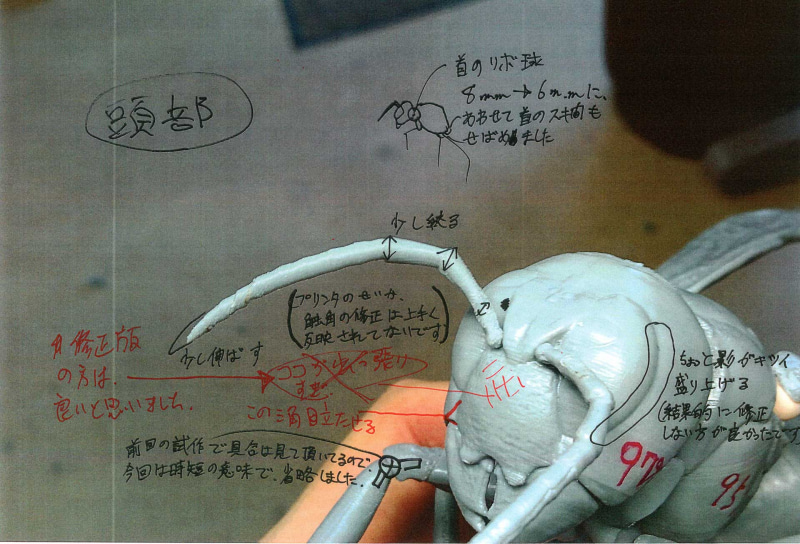 頭部
首のリボ球
8mm→6mmに、
あわせて首のスキ間も
せばめました
少し絞る
(プリンタのせいか、
触角の修正は上手く
反映されてないです)
少し伸ばす
修正版
の方は、
良いと思いました。
ココが少し張り
すぎ
この角目立たせる
前回の試作で具合は見て頂いてるので、
今回は時短の意味で、省略しました。
ちょっと影がキツイ
盛り上げる
(結果的に修正
しない方が良かったです
97%
95